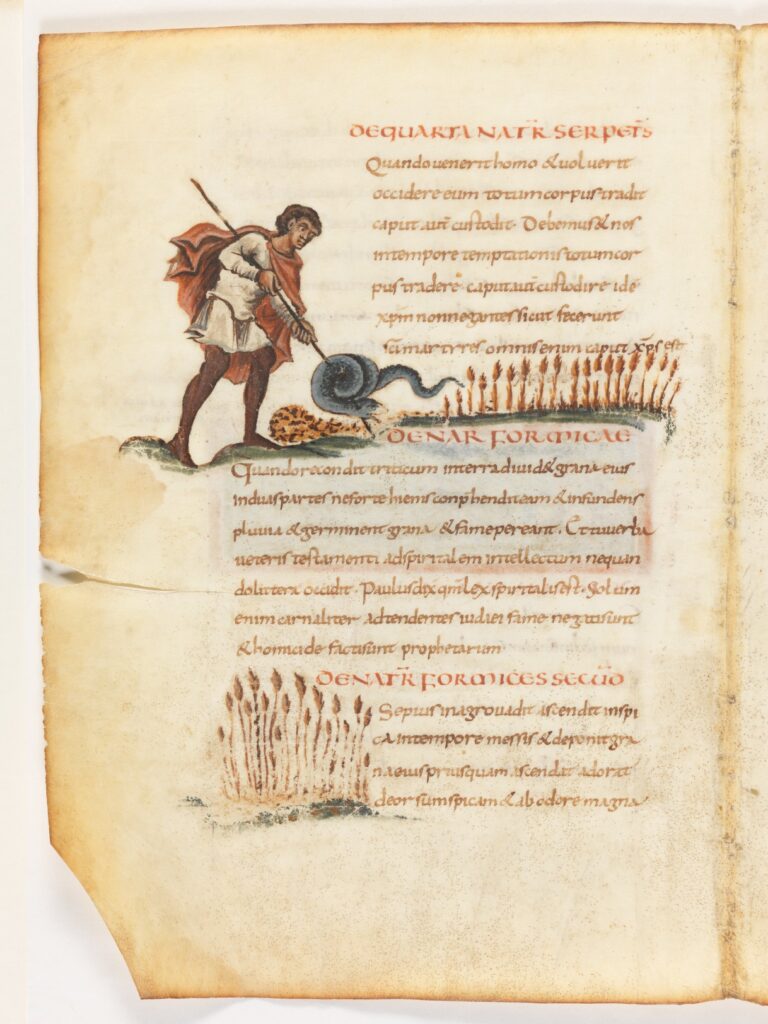 DE QUARTA NATR SERPETS
Quando venerit homo & voluerit
occidere eum totum corpus tradit
caput aut custodit. Debemus & nos
in tempore temptationis totum cor
pus tradere caput aut custodire ide
xpm non negantes sicut fecerunt
sci martyres omnis enim caput xps est
DE NAR FORMICAE
Quando recondit triticum in terra divid& grana eius
in duas partes ne forte hiems conphendit eam & infundens
pluvia & germinent grana & fame pereant. Et tu verba
veteris testamenti ad spiritalem intellectum ne quan
do littera occidit. Paulus dix qm lex spiritalis est. Solum
enim carnaliter adtendentes iudaei fame negati sunt
& homicide facti sunt prophetarum
DE NATR FORMICES SECUD
Sepius in agro vadit ascendit in spi
ca in tempore messis & deponit gra
na eius priusquam ascendat adorat
deorsum spicam & ab odore magna